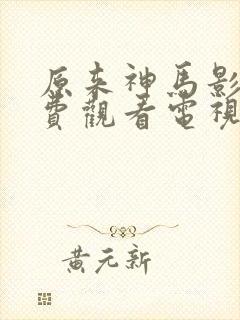 原来神馬影
費觀看電視
黄元新